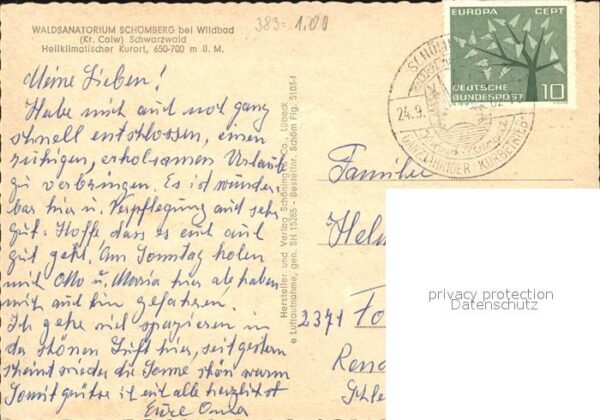 WALDSANATORIUM SCHÖMBERG bei Wildbad
(Kr. Calw) Schwarzwald
Heilklimatischer Kurort, 650-700 m ü. M.
383-1,00
EUROPA CEPT
DEUTSCHE
BUNDESPOST 10
24.9.
62
GANZJÄHRIGER KURBETRIEB
Meine Lieben!
Habe mich auch noch ganz
schnell entschlossen, einen
ruhigen, erholsamen Urlaub
zu verbringen. Es ist wunder-
bar hier u. Verpflegung auch sehr
gut. Hoffe dass es euch auch
gut geht. Am Sonntag holen
mich Otto u. Maria hier ab, haben
mich auch hin gefahren.
Ich gehe viel spazieren in
der schönen Luft hier, seit gestern
scheint wieder die Sonne schön warm
Somit grüße ich euch alle herzlichst
Eure Oma
Hersteller und Verlag Schöning & Co., Lübeck
© Luftaufnahme, gen. SH 15285 - Bestellnr. Schöm Flg. 5105-f
Familie
Helm
2371 Fo
Rend
Schle
privacy protection
Datenschutz